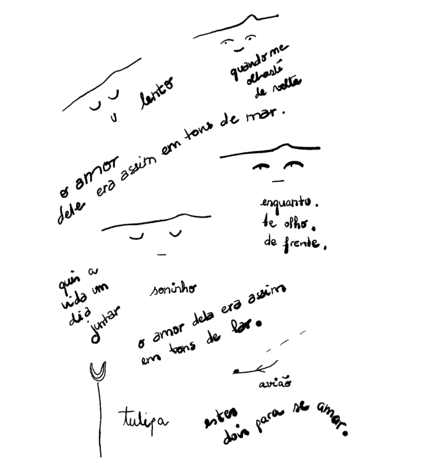 quando me
olhaste
de volta
lento
o amor
dele era assim em tons de mar.
enquanto.
te olho.
de frente.
quis a
vida um
dia
juntar
soninho
o amor dela era assim
em tons de lar.
avião
tulipa
estes
dois para se amar.